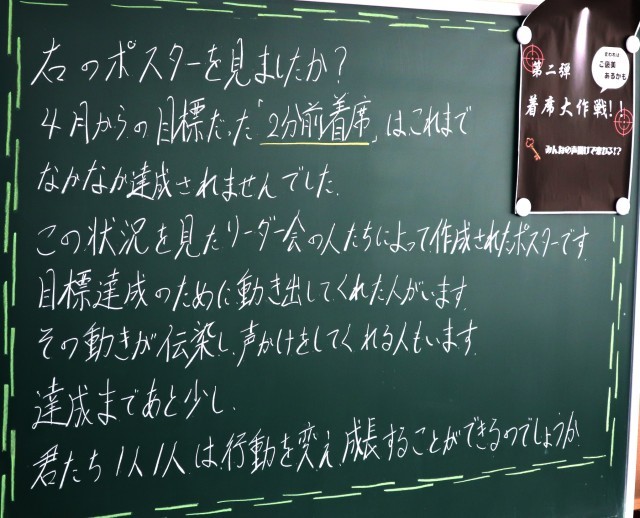 右のポスターを見ましたか？
4月からの目標だった「2分前着席」は、これまで
なかなか達成されませんでした。
この状況を見たリーダー会の人たちによって作成されたポスターです。
目標達成のために動き出してくれた人がいます。
その動きが伝染し、声かけをしてくれる人もいます。
達成まであと少し。
君たち1人1人は、行動を変え、成長することができるのでしょうか。
ご褒美
あるかも
第二弾
着席大作戦!!
みんなの声掛けできまる!?